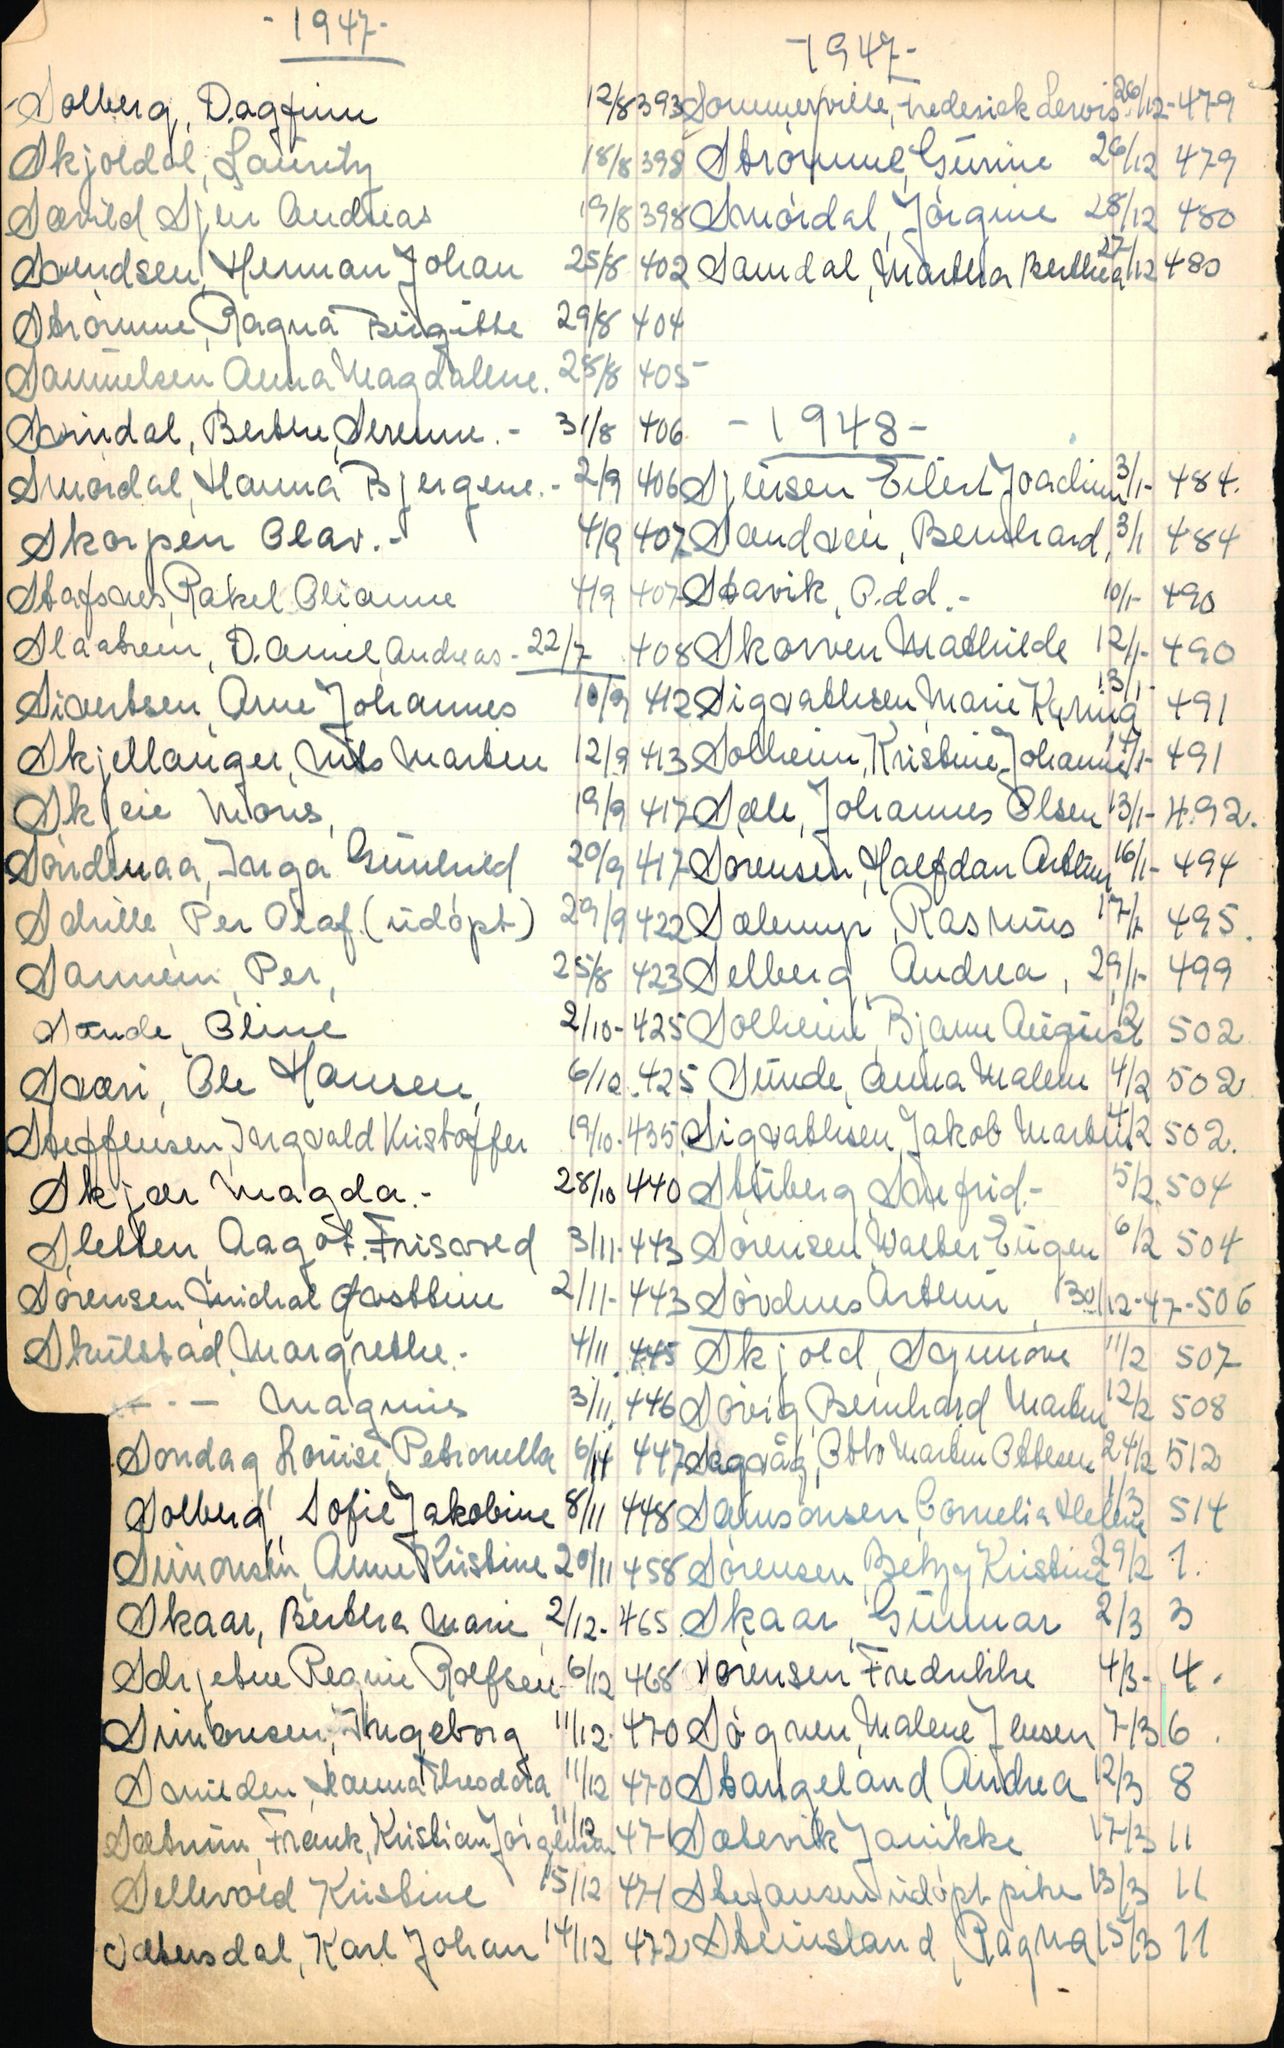 -1947-
Solberg, Dagfinn 12/8 393
Skjoldal, Lauritz 18/8 398
Sævild Sjur Andreas 19/8 398
Svendsen, Herman Johan 25/8 402
Strømme, Ragna Birgitte 29/8 404
Samuelsen Anna Magdalene. 28/8 405
Sørindal, Berthe Serenne. - 31/8 406
Smørdal, Hanna Bjergene. - 2/9 406
Skorpen Olav. - 4/9 407
Stafsnes, Rakel Olianne 4/9 407
Slaatrem, Daniel Andreas - 22/7 408
Sivertsen, Arne Johannes 10/9 412
Skjellanger, Nils Martin 12/9 413
Skjeie Mons, 19/9 417
Søndenaa, Inga Gunhild 20/9 417
Schille Per Olaf. (udøpt) 29/9 422
Sannem, Per, 25/8 423
Sande, Oline 2/10 - 425
Svori, Ole Hansen, 6/10. 425
Steffensen, Ingvald Kristoffer 19/10. 435
Skjær Magda. - 28/10 440
Sletten, Aagot. Frisvold 3/11. 443
Sørensen, Michal 2/11 - 443
Skulstad, Margrethe. - 4/11. 445
-"- - Magnus 3/11. 446
Sondag Louise, Petronella 6/11 447
Solberg, Sofie Jakobine 8/11 448
Simonsen, Anne Kristine 20/11 458
Skaar, Berthe Marie, 2/12. 465
Schjetne Regine Rolfsen - 6/12 468
Simonsen, Ingeborg 11/12. 470
Smieden, Hanna Theodora 11/12 470
Sætrum, Frank, Kristian Jørgensen 11/12 471
Sellevold Kristine 15/12 471
Sætersdal, Karl Johan 14/12 472
-1947-
Sommerville, Frederick Lewis. 26/12 - 479
Strømme, Gurine 26/12 479
Smørdal, Jørgine 28/12 480
Samdal, Martha Berthea 27/12 480
-1948-
Sjursen Eilert Joachim 3/1 - 484.
Sandven, Bernhard, 3/1 484
Stavik, Odd. - 10/1 - 490
Skorven Mathilde 12/1 - 490
Sigvathsen, Marie Kyrnig 13/1 - 491
Solheim, Kristine Johanne 491
Sæle, Johannes Olsen 13/1 - 492.
Sørensen, Halfdan Arthur 16/1 - 494
Sælemyr, Rasmus 17/1 495.
Selberg, Andrea, 29/1 - 499
Solheim, Bjarne August 502
Sunde, Anna Malene 4/2 502
Sigvathsen, Jakob Martin 4/2 502.
Stuberg, Solefrid. - 5/2. 504
Sørensen, Walter Eugen 6/2 504
Sørdnes Arthur 30/12 - 47 - 506
Skjold, Synnøve 11/2 507
Søvig, Bernhard Martin 12/2 508
Sagvåg, Otto Martin Ottesen 24/2 512
Samsonsen, Cornelia Helene 1/3 514
Sørensen, Betzy Kristine 29/2 1.
Skaar, Gunnar 2/3 3
Sørensen Fredrikke 4/3 - 4.
Søgnen, Malene Jensen 7/3 6.
Stangeland, Andrea 12/3 8
Sætevik Janikke 17/3 11
Stefansen udøpt pike 13/3 11
Steinsland, Ragna 15/3 11